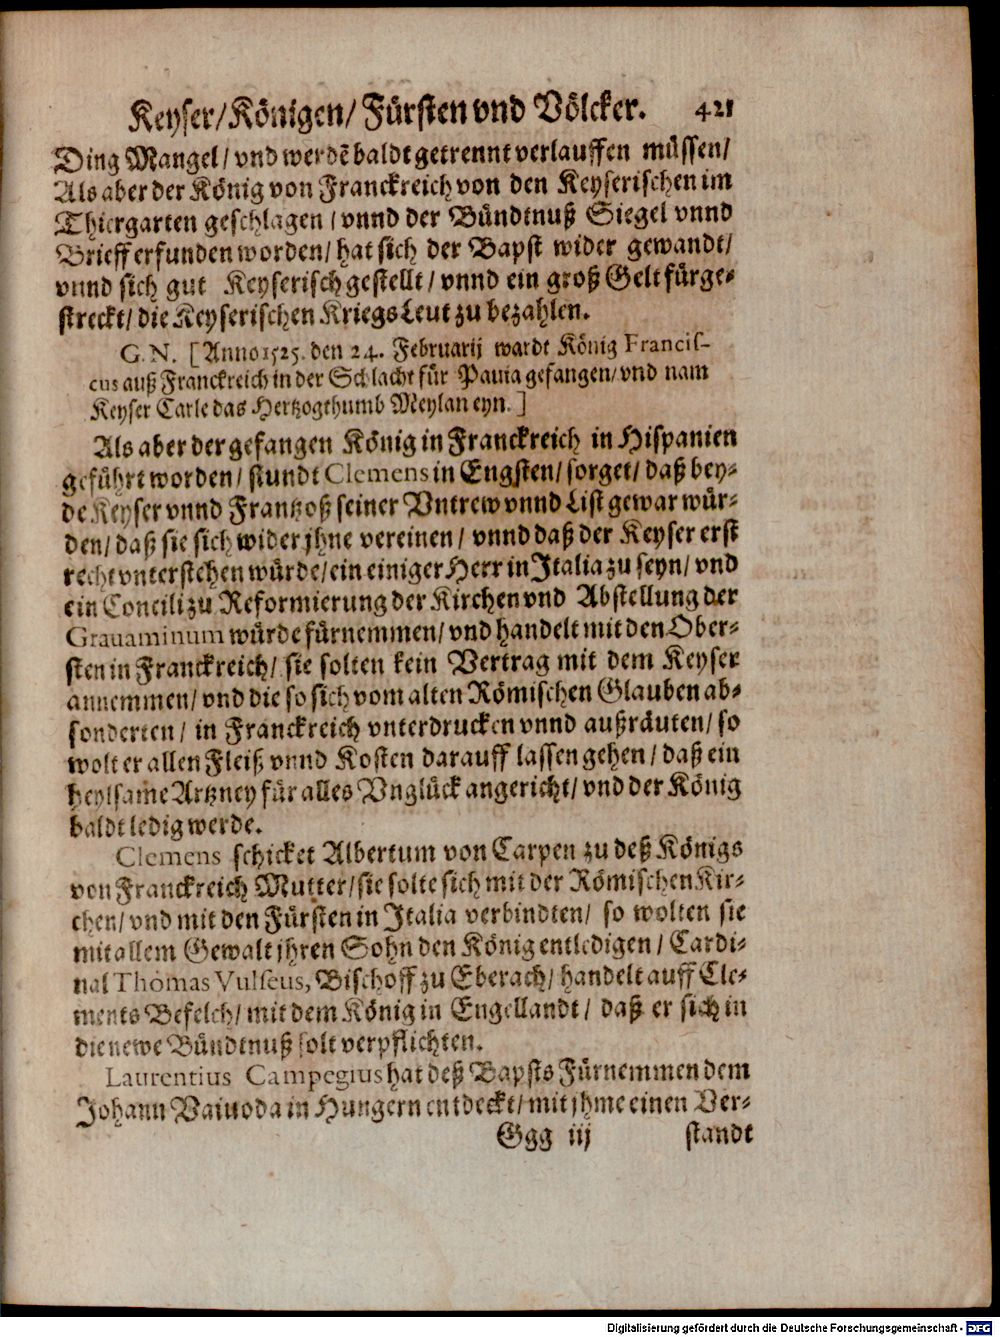 Keyser/ Königen/ Fürsten vnd Völcker. 421
Ding Mangel/ vnd werdẽ baldt getrennt verlauffen müssen/
Als aber der König von Franckreich von den Keyserischen im
Thiergarten geschlagen/ vnnd der Bündtnuß Siegel vnnd
Brieff erfunden worden/ hat sich der Bapst wider gewandt/
vnnd sich gut Keyserisch gestellt/ vnnd ein groß Gelt fürge-
streckt/ die Keyserischen Kriegs Leut zu bezahlen.
G. N. [Anno 1525. den 24. Februarij wardt König Francis-
cus auß Franckreich in der Schlacht für Pauia gefangen/ vnd nam
Keyser Carle das Hertzogthumb Meylan eyn.]
Als aber der gefangen König in Franckreich in Hispanien
geführt worden/ stundt Clemens in Engsten/ sorget/ daß bey-
de Keyser vnnd Frantzoß seiner Vntrew vnnd List gewar wür-
den/ daß sie sich wider jhne vereinen/ vnnd daß der Keyser erst
recht vnterstehen würde/ ein einiger Herr in Italia zu seyn/ vnd
ein Concili zu Reformierung der Kirchen vnd Abstellung der
Grauaminum würde fürnemmen/ vnd handelt mit den Ober-
sten in Franckreich/ sie solten kein Vertrag mit dem Keyser
annemmen/ vnd die so sich vom alten Römischen Glauben ab-
sonderten/ in Franckreich vnterdrucken vnnd außräuten/ so
wolt er allen Fleiß vnnd Kosten darauff lassen gehen/ daß ein
heylsame Artzney für alles Vnglück angericht/ vnd der König
baldt ledig werde.
Clemens schicket Albertum von Carpen zu deß Königs
von Franckreich Mutter/ sie solte sich mit der Römischen Kir-
chen/ vnd mit den Fürsten in Italia verbindten/ so wolten sie
mit allem Gewalt jhren Sohn den König entledigen/ Cardi-
nal Thomas Vulseus, Bischoff zu Eberach/ handelt auff Cle-
ments Befelch/ mit dem König in Engellandt/ daß er sich in
die newe Bündtnuß solt verpflichten.
Laurentius Campegius hat deß Bapsts Fürnemmen dem
Johann Vaiuoda in Hungern entdeckt/ mit jhme einen Ver-
Ggg iij standt
Digitalisierung gefördert durch die Deutsche Forschungsgemeinschaft - DFG